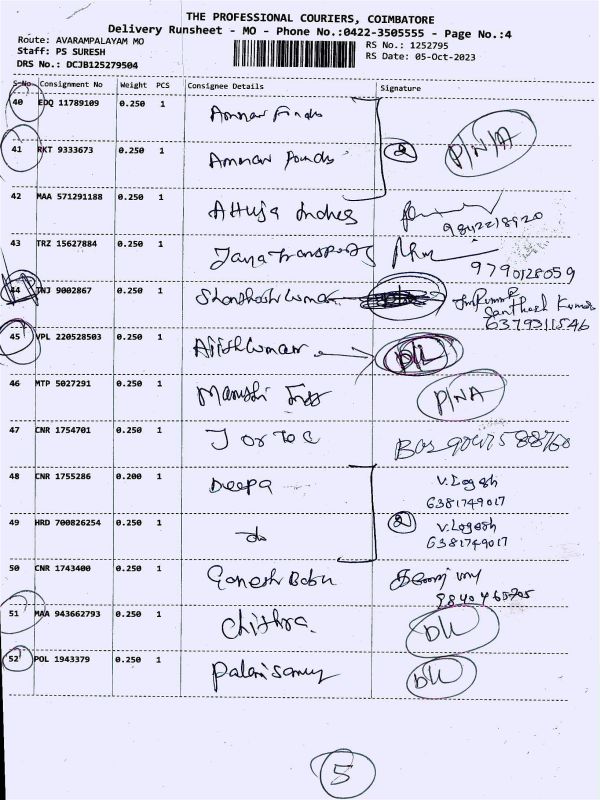 THE PROFESSIONAL COURIERS, COIMBATORE
Delivery Runsheet - MO - Phone No.:0422-3505555 - Page No.:4
Route: AVARAMPALAYAM MO
RS No.: 1252795
Staff: PS SURESH
RS Date: 05-Oct-2023
DRS No.: DCJB125279504
S.No Consignment No Weight PCS Consignee Details Signature
40 EDQ 11789109 0.250 1 Amman
P/N/A
41 RKT 9333673 0.250 1 Amman
2
42 MAA 571291188 0.250 1 Indres
9842218920
43 TRZ 15627884 0.250 1 Jaya Transports
9790128059
44 TNJ 9002867 0.250 1
Santhosh Kumar
6379311546
45 VPL 220528503 0.250 1 Ajithkumar D/L
46 MTP 5027291 0.250 1 P/NA
47 CNR 1754701 0.250 1
48 CNR 1755286 0.200 1 Deepa V.Logesh
6381749017
49 HRD 700826254 0.250 1 do 2 V.Logesh
6381749017
50 CNR 1743400 0.250 1 Ganesh Babu
51 MAA 943662793 0.250 1 Chithra. D/L
52 POL 1943379 0.250 1 Palanisamy D/L
5